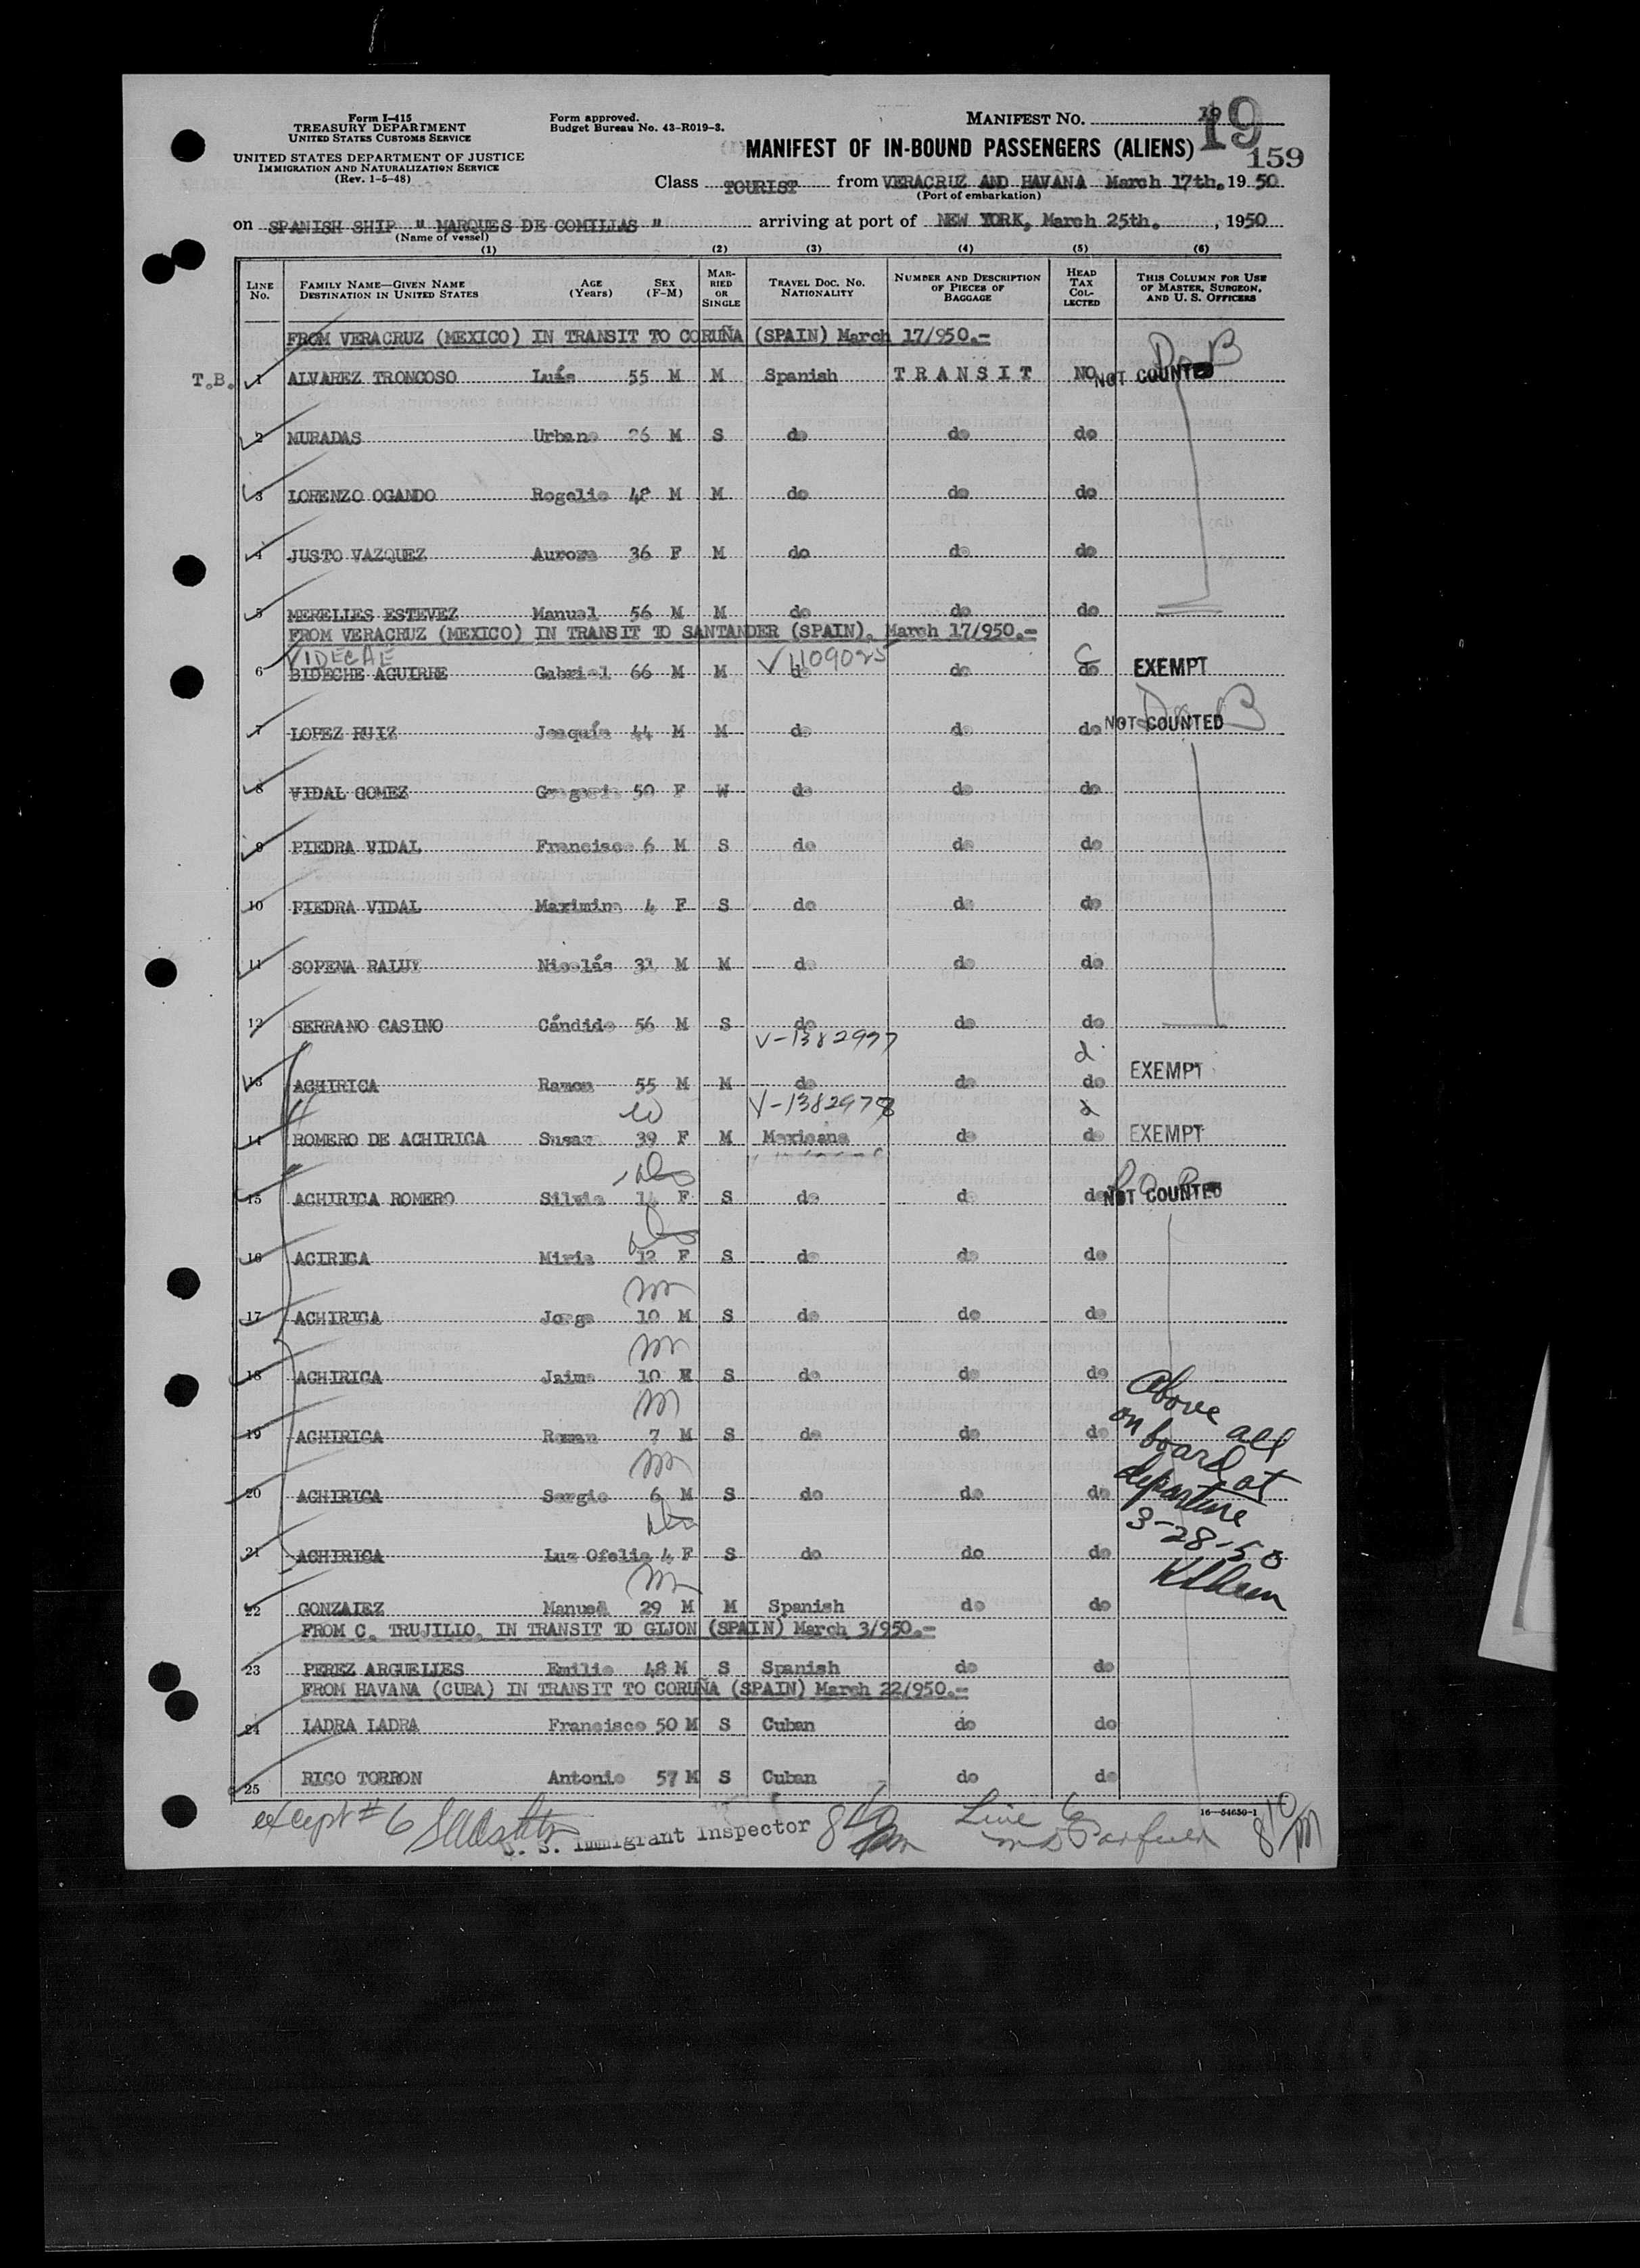 Form I-415
TREASURY DEPARTMENT
UNITED STATES CUSTOMS SERVICE
UNITED STATES DEPARTMENT OF JUSTICE
IMMIGRATION AND NATURALIZATION SERVICE
(Rev. 1-5-48)
Form approved.
Budget Bureau No. 43-R019-3.
MANIFEST NO. 19
19
159
MANIFEST OF IN-BOUND PASSENGERS (ALIENS)
Class TOURIST from VERACRUZ AND HAVANA March 17th, 1950
(Port of embarkation)
on SPANISH SHIP " MARQUES DE COMILLAS " arriving at port of NEW YORK, March 25th. , 1950
(Name of vessel)
(1) (2) (3) (4) (5) (6)
LINE No. FAMILY NAME—GIVEN NAME DESTINATION IN UNITED STATES AGE (Years) SEX (F-M) MARRIED OR SINGLE TRAVEL DOC. NO. NATIONALITY NUMBER AND DESCRIPTION OF PIECES OF BAGGAGE HEAD TAX COLLECTED THIS COLUMN FOR USE OF MASTER, SURGEON, AND U. S. OFFICERS
FROM VERACRUZ (MEXICO) IN TRANSIT TO CORUÑA (SPAIN) March 17/950.-
T.B. 1 ALVAREZ TRONCOSO Luís 55 M M Spanish TRANSIT NO NOT COUNTED
2 MURADAS Urbano 26 M S do do do
3 LORENZO OGANDO Rogelio 48 M M do do do
4 JUSTO VAZQUEZ Aurora 36 F M do do do
5 MERELLES ESTEVEZ Manuel 56 M M do do do
FROM VERACRUZ (MEXICO) IN TRANSIT TO SANTANDER (SPAIN). March 17/950.-
VIDECAE V1109025 C
6 BIDECHE AGUIRRE Gabriel 66 M M do do do EXEMPT
7 LOPEZ RUIZ Joaquín 44 M M do do do NOT COUNTED
8 VIDAL GOMEZ Gregoria 50 F W do do do
9 PIEDRA VIDAL Francisco 6 M S do do do
10 PIEDRA VIDAL Maximina 4 F S do do do
11 SOPENA RALUY Nicolás 31 M M do do do
12 SERRANO CASINO Cándido 56 M S do do do
V-1382977 d
13 ACHIRICA Ramon 55 M M do do do EXEMPT
W V-1382978 d
14 ROMERO DE ACHIRICA Susan 39 F M Mexicana do do EXEMPT
15 ACHIRICA ROMERO Silvia 14 F S do do do NOT COUNTED
16 ACIRICA Miria 12 F S do do do
m
17 ACHIRICA Jorge 10 M S do do do
m
18 ACHIRICA Jaime 10 M S do do do
m
19 ACHIRICA Roman 7 M S do do do
m
20 ACHIRICA Sergio 6 M S do do do
21 ACHIRICA Luz Ofelia 4 F S do do do
Above all
on board at
departure
3-28-50
m
22 GONZALEZ Manuel 29 M M Spanish do do
FROM C. TRUJILLO. IN TRANSIT TO GIJON (SPAIN) March 3/950.-
23 PEREZ ARGUELLES Emilio 48 M S Spanish do do
FROM HAVANA (CUBA) IN TRANSIT TO CORUÑA (SPAIN) March 22/950.-
24 LADRA LADRA Francisco 50 M S Cuban do do
25 RICO TORRON Antonio 57 M S Cuban do do
16—54650-1
except #6
U. S. Immigrant Inspector
Line 6